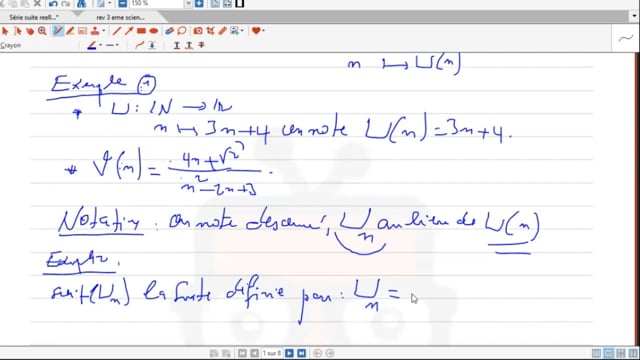 150 %
Série suite reell...
rev 3 eme scien...
Crayon
n ↦ U(n)
Exemple ①
* U : IN → IR
n ↦ 3n+4 on note U(n) = 3n+4.
* V(n) = (4n+√2) / (n²-2n+3)
Notation : on note désormais U_n au lieu de U(n)
Exemple 2.
soit (U_n) la suite définie par : U_n =
1 sur 8